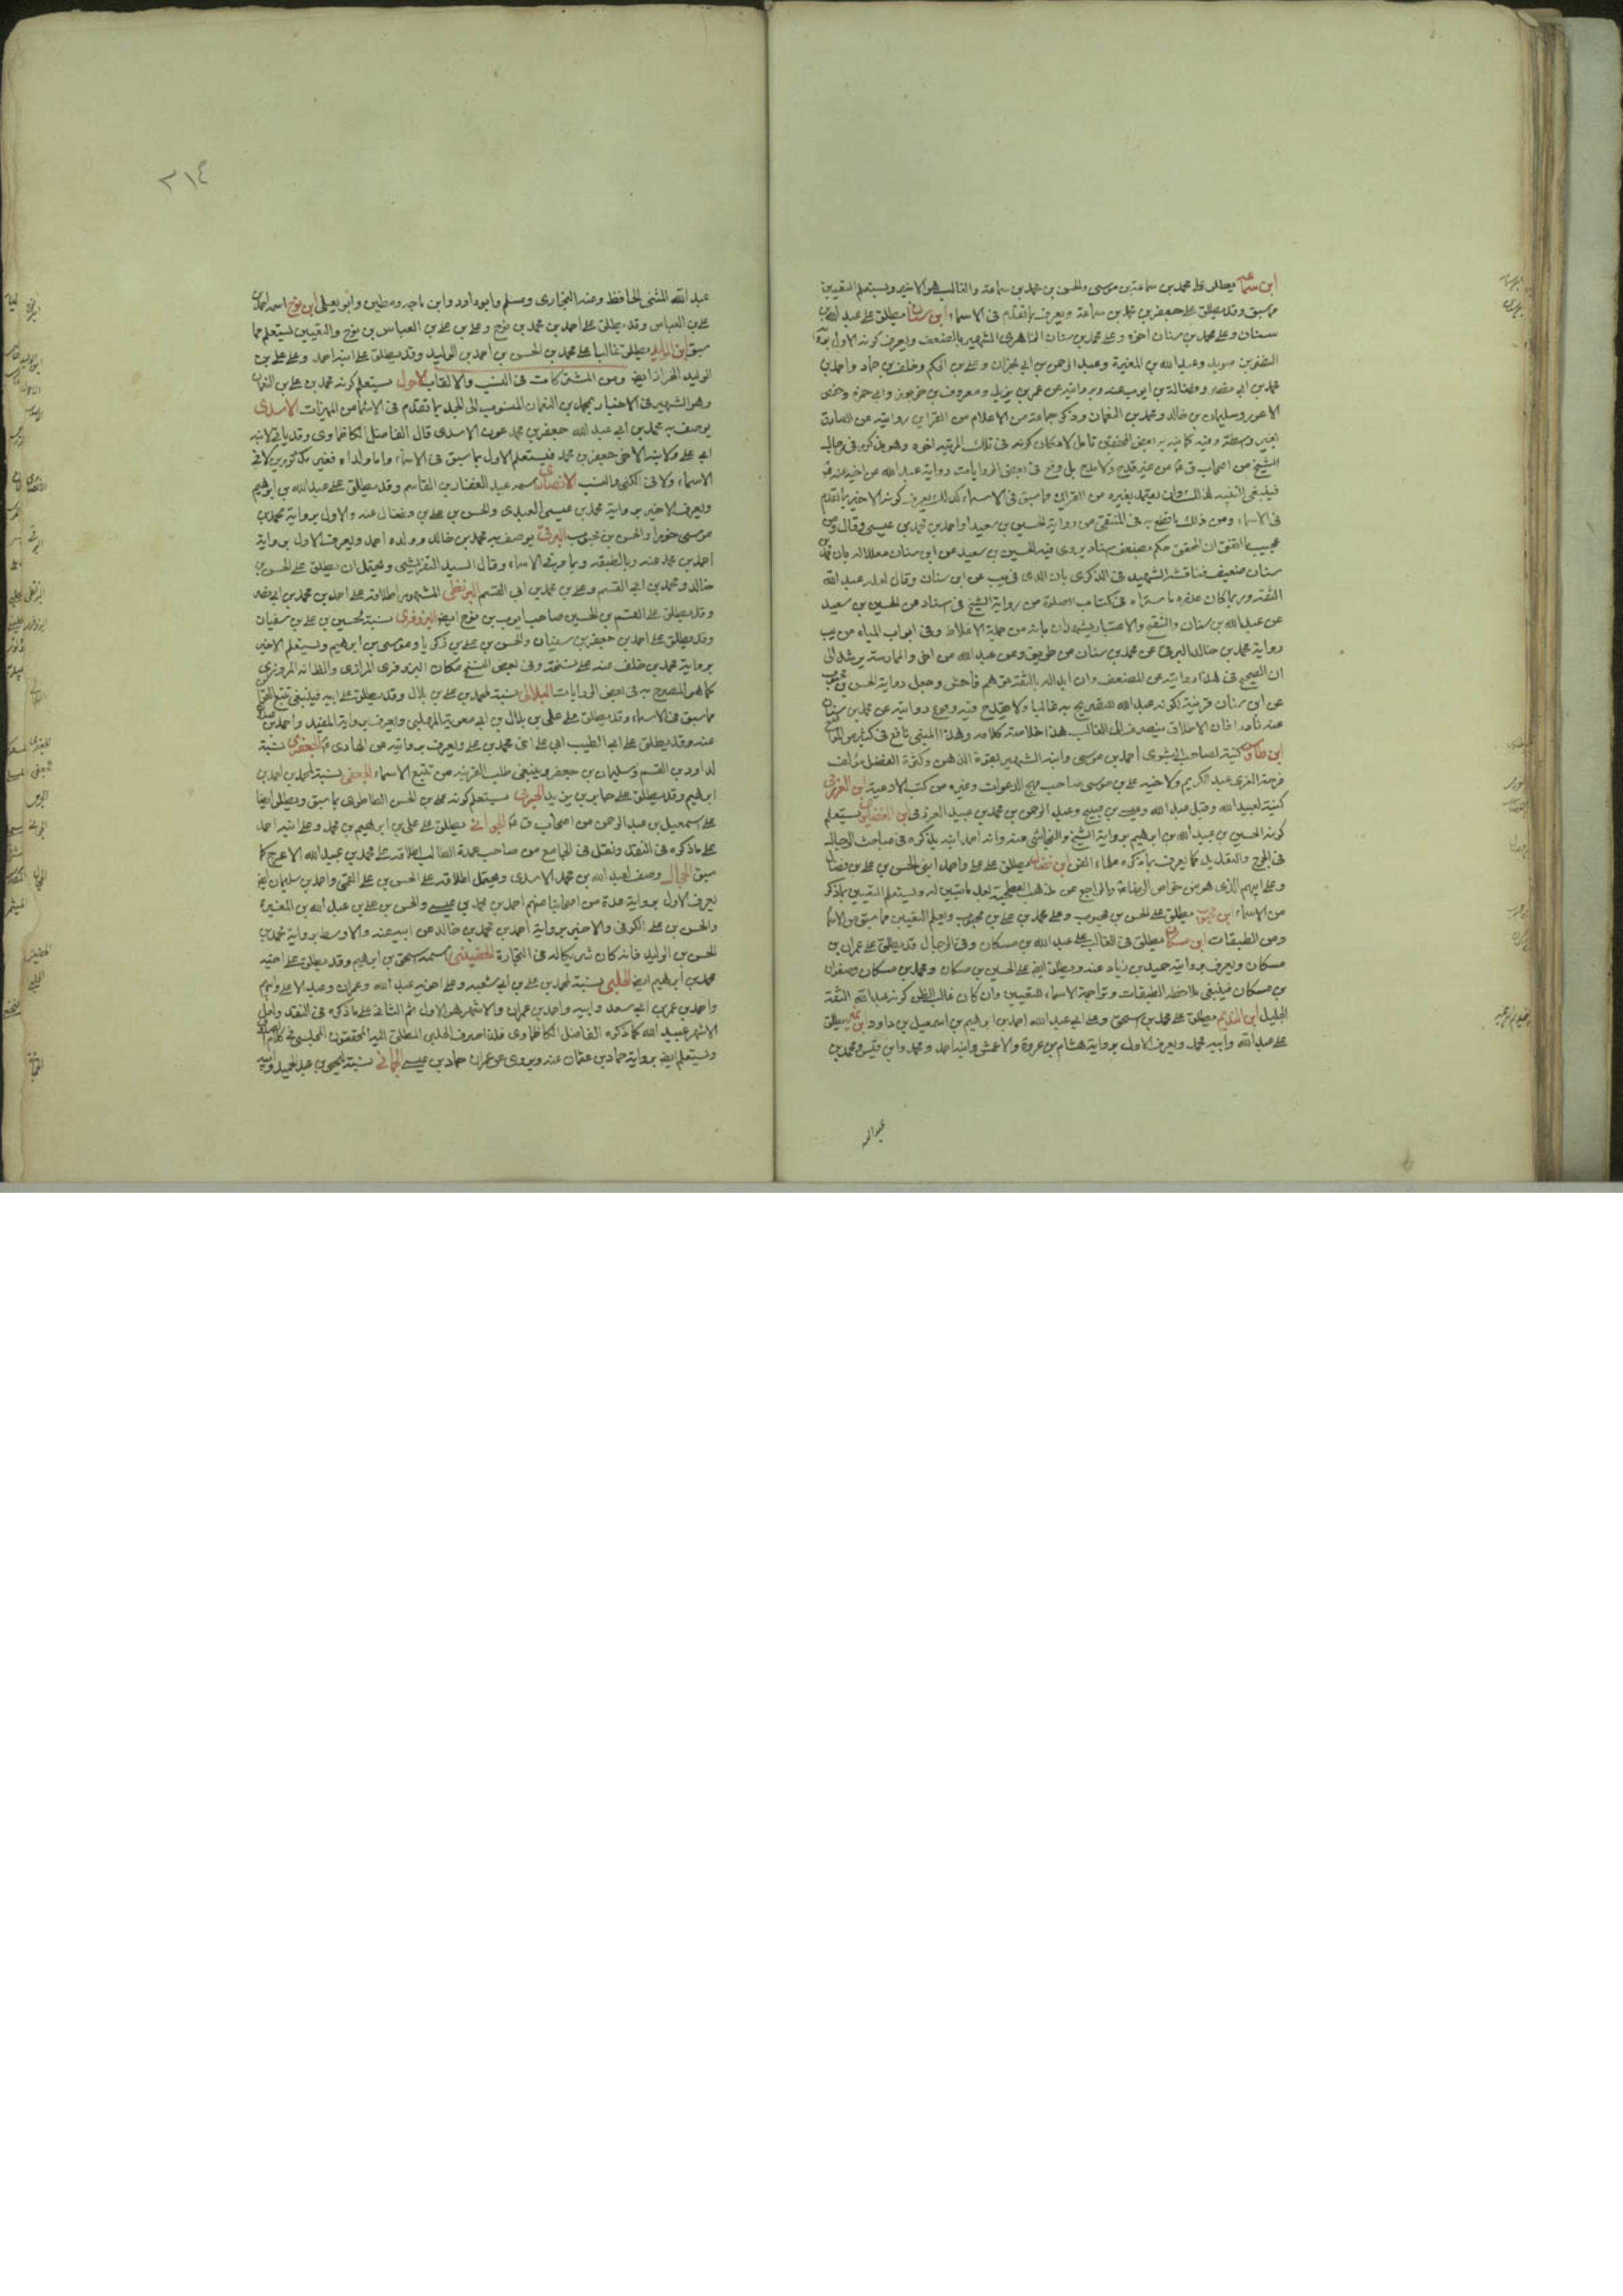 ابن سماعة يطلق على محمد بن سماعة بن موسى والحسن بن محمد بن سماعة والغالب هو الاخير ويستعلم التعيين
مما سبق وقد يطلق على جعفر بن محمد بن سماعة ويعرف بما تقدم فى الاسماء ابن سنان يطلق على عبد الله بن
سنان وعلى محمد بن سنان اخوه وعلى محمد بن سنان الشهير بالضعف ويعرف كونه الاول
النضر بن سويد وعبد الله بن المغيرة وعبد الرحمن بن ابى نجران وعلى بن الحكم وخلف بن حماد واحمد بن
محمد بن ابى نصر وفضالة بن ايوب عنه وبروايته عن عمر بن يزيد ومعروف بن خربوذ وابى حمزة وحفص
الاعور وسليمان بن خالد ومحمد بن النعمان وذكر جماعة من الاعلام من القراين روايته عن الصادق
بغير واسطة وفيه كما نبه به بعض المحققين تامل لامكان كونه فى تلك المرتبة اخوه وهو مذكور فى رجال
الشيخ من اصحاب ق من غير قدح ولا مدح بل وقع فى بعض الروايات رواية عبد الله عن اخيه عنه
فينبغى التنبه لذلك وان يعتمد بغيره من القراين مما سبق فى الاسماء كذلك يعرف كونه الاخير بما تقدم
فى الاسماء ومن ذلك ما قطع به فى المنتقى من رواية الحسين بن سعيد واحمد بن محمد بن عيسى وقال ومن
عجيب ما اتفق ان المحقق حكم بضعف سناد يروى فيه الحسين بن سعيد عن ابن سنان معللا له بان محمد بن
سنان ضعيف فناقشه الشهيد فى الذكرى بان الذى فى يب عن ابن سنان وقال لعله عبد الله
الثقة وربما كان عذره ما ستراه فى كتاب الصلوة من رواية الشيخ فى سناد عن الحسين بن سعيد
عن عبد الله بن سنان والتتبع والاعتبار يشهدان بانه من جملة الاغلاط وفى ابواب المياه من يب
رواية محمد بن خالد البرقى عن محمد بن سنان من طريق وعن عبد الله من اخر والممارسة يرشد الى
ان الصحيح فى هذا روايته عن المضعف وان ابداله بالثقة توهم فاحش وجعل رواية الحسن بن محبوب
عن ابن سنان قرينة لكونه عبد الله للتصريح به غالبا ولا يقدح فيه وقوع روايته عن محمد بن سنان
عنه نادرا فان الاطلاق ينصرف الى الغالب هذا خلاصة كلامه وهذا المبنى نافع فى كثير من المواضع
ابن طاوس كنية لصاحب البشرى احمد بن موسى وابنه الشهير بقوة الذهن وكثرة الفضل مؤلف
فرحة الغرى عبد الكريم ولاخيه على بن موسى صاحب مهج الدعوات وغيره من كتب الادعية ابن العرزمى
كنية لعبيد الله وقيل عبد الله وعيسى بن صبيح وعبد الرحمن بن محمد بن عبيد العرزمى ابن الغضايرى يستعلم
كونه الحسين بن عبيد الله بن ابراهيم برواية الشيخ والنجاشى عنه وانه احمد ابنه بذكره فى مباحث الرجال
فى الجرح والتعديل كما يعرف بما ذكره علماء الفن ابن فضال يطلق على على واحمد ابنى الحسن بن على بن فضال
وعلى ابيهم الذى هو من خواص الرضا ع والراجع عن مذهب الفطحية بعد ما تبين له ويستعلم التعيين بما ذكر
من الاسماء ابن محبوب يطلق على الحسن بن محبوب وعلى محمد بن على بن محبوب ويعلم التعيين مما سبق من الاسماء
ومن الطبقات ابن مسكان يطلق فى الغالب على عبد الله بن مسكان وفى الرجال قد يطلق على عمران بن
مسكان ويعرف برواية حميد بن زياد عنه ويطلق ايضا على الحسين بن مسكان ومحمد بن مسكان وصفوان
بن مسكان فينبغى ملاحظة الطبقات وتراجمة الاسماء للتعيين وان كان غالب الظن كونه عبد الله الثقة
الجليل ابن النديم يطلق على محمد بن اسحق وعلى ابى عبد الله احمد بن ابراهيم بن اسمعيل بن داود ابن نمير يطلق
على عبد الله وابنه محمد ويعرف الاول برواية هشام بن عروة والاعمش وابنه احمد ومحمد وابن قيس ومحمد بن
عبد الله
٢١٤
عبد الله المثنى الحافظ وعنه البخارى ومسلم وابو داود وابن ماجه ومطين وابو يعلى ابن نوح اسمه احمد بن
على بن العباس وقد يطلق على احمد بن محمد بن نوح وعلى بن على بن العباس بن نوح والتعيين يستعلم مما
سبق ابن الوليد يطلق غالبا على محمد بن الحسن بن احمد بن الوليد وقد يطلق على ابنه احمد وعلى على بن
الوليد الخزاز ايضا ومن المشتركات فى النسب والالقاب الاحول يستعلم كونه محمد بن على بن النعمان
وهو الشهير فى الاخبار بمحمد بن النعمان المنسوب الى الجد بما تقدم فى الاسماء من المميزات الاسدى
يوصف به محمد بن ابى عبد الله جعفر بن محمد عون الاسدى قال الفاضل الكاظماوى وقد ياتى لابنه
ابى على ولابنه الاخر جعفر بن محمد فيستعلم الاول بما سبق فى الاسماء واما ولداه فغير مذكورين لا فى
الاسماء ولا فى الكنى والنسب الانصارى اسمه عبد الغفار بن القاسم وقد يطلق على عبد الله بن ابراهيم
ويعرف الاخير برواية محمد بن عيسى العبيدى والحسن بن على بن فضال عنه والاول برواية محمد بن
موسى خوراء والحسن بن محبوب البرقى يوصف به محمد بن خالد وولده احمد ويعرف الاول برواية
احمد بن محمد عنه وبالطبقة وبما مر فى الاسماء وقال السيد التفريشى ويحتمل ان يطلق على الحسن بن
خالد ومحمد بن ابى القسم وعلى بن محمد بن ابى القسم البزنطى المشهور اطلاقه على احمد بن محمد بن ابى نصر
وقد يطلق على القسم بن الحسين صاحب ايوب بن نوح ايضا البزوفرى نسبة لحسين بن على بن سفيان
وقد يطلق على احمد بن جعفر بن سفيان والحسن بن على بن زكريا وموسى بن ابراهيم ويستعلم الاخير
برواية محمد بن خلف عنه على نسخة وفى بعض النسخ مكان البزوفرى الرازى والظانه المروزى
كما هو المصرح به فى بعض الروايات البلالى نسبة لمحمد بن على بن بلال وقد يطلق على ابيه فينبغى تتبع
مما سبق من الاسماء وقد يطلق على على بن بلال بن ابى معوية المهلبى ويعرف برواية المفيد واحمد بن
عنه وقد يطلق على ابى الطيب ابى على اخى محمد بن على ويعرف بروايته عن الهادى ع الجعفرى نسبة
لداود بن القسم وسليمان بن جعفر وينبغى طلب القرينة من تتبع الاسماء الجعفى نسبة لمحمد بن احمد بن
ابراهيم وقد يطلق على جابر بن يزيد الجرمى يستعلم كونه على بن الحسن الطاطرى بما سبق ويطلق ايضا
على اسمعيل بن عبد الرحمن من اصحاب ق ع الجوانى يطلق على على بن ابراهيم بن محمد وعلى ابنه احمد
على ما ذكره فى النقد ونقل فى الجامع من صاحب عمدة الطالب اطلاقه على محمد بن عبيد الله الاعرج كما
سبق الحجال وصف لعبد الله بن محمد الاسدى ويحتمل اطلاقه على الحسن بن على القمى واحمد بن سليمان ايضا
يعرف الاول برواية عدة من اصحابنا منهم احمد بن محمد بن عيسى والحسن بن على بن عبد الله بن المغيرة
والحسن بن على الكوفى والاخير برواية احمد بن محمد بن خالد عن ابيه عنه والاوسط برواية محمد بن
الحسن بن الوليد فانه كان شريكا له فى التجارة الحضينى اسمه اسحق بن ابراهيم وقد يطلق على اخيه
محمد بن ابراهيم ايضا الحلبى نسبة لمحمد بن على بن ابى شعبة وعلى اخوته عبيد الله وعمران وعبد الاعلى وابيهم
واحمد بن عمر بن ابى سعد وابيه واحمد بن عمران والاشهر هو الاول ثم الثانى على ما ذكره فى النقد وقيل
الاشهر عبيد الله كما ذكره الفاضل الكاظماوى فلذا صرف الحلبى المطلق اليه المحققون المجلسى فى كلامه
ويستعلم ايضا برواية حماد بن عثمان عنه ويروى عن عمران حماد بن عيسى الحمانى نسبة ليحيى بن عبد الحميد وابيه